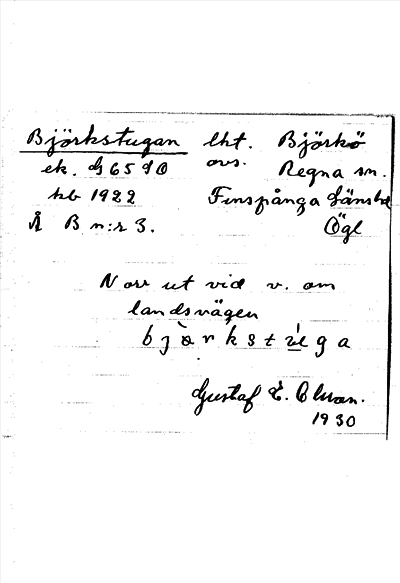 Björkstugan lht. Björkö
ek. G6590 avs. Regna sn.
kb 1922 Finspånga länshd
Å B n:r 3. Ögl
Norr ut vid v. om
landsvägen
Gustaf E. Olsson.
1930